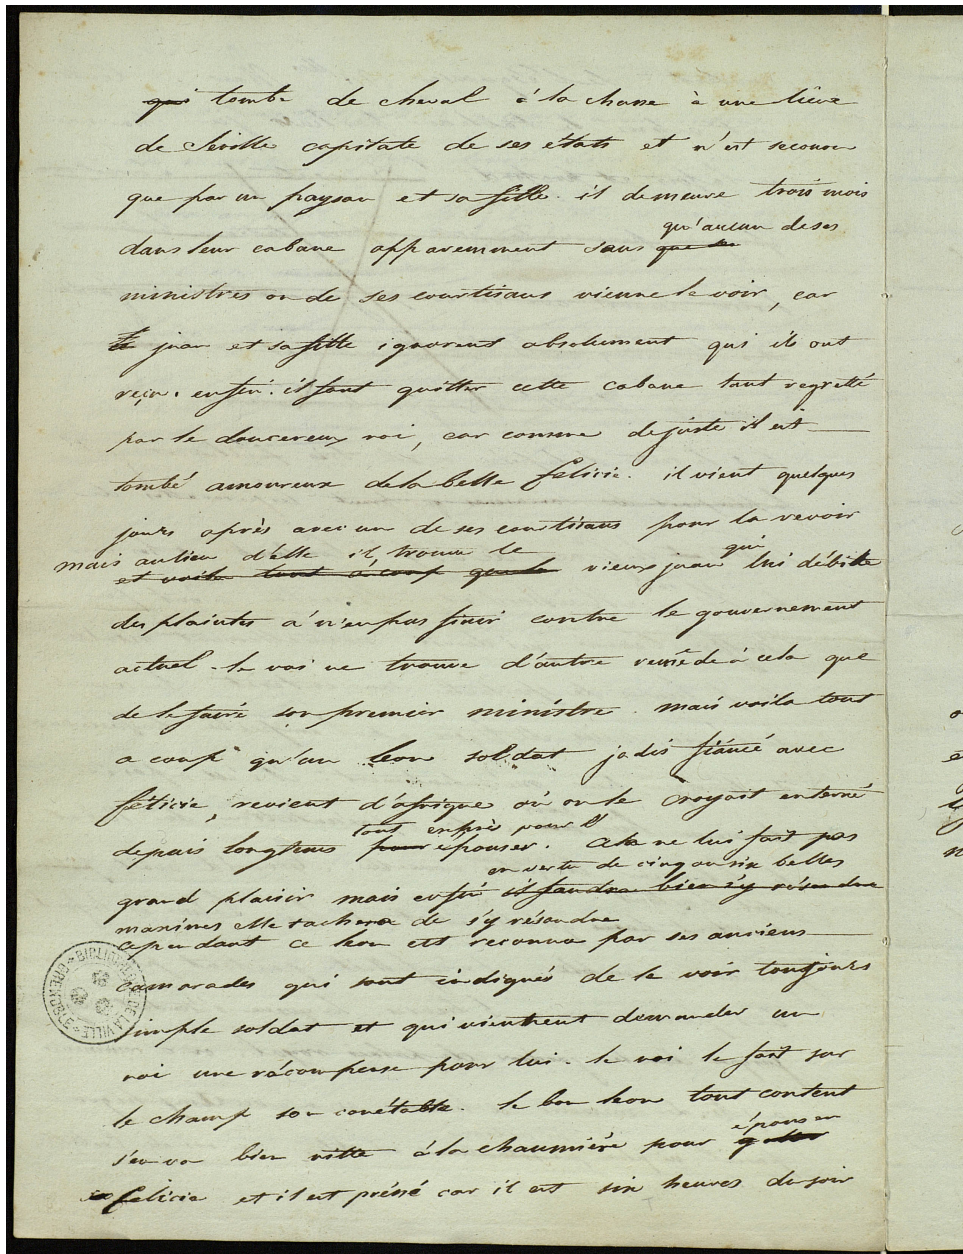 qui tombe de cheval à la chasse à une lieue
de Séville capitale de ses états et n'est secouru
que par un paysan et sa fille. il demeure trois mois
qu'aucun de ses
dans leur cabane apparemment sans que
ministres ou de ses courtisans vienne le voir, car
juan et sa fille ignorent absolument qui ils ont
reçu. enfin il faut quitter cette cabane tant regretté
par le doucereux roi, car comme de juste il est
tombé amoureux de la belle felicie. il vient quelques
jours après avec un de ses courtisans pour la revoir
mais au lieu d'elle il trouve le qui
et voila tout à coup que le vieux juan lui débite
des plaintes à n'en pas finir contre le gouvernement
actuel. le roi ne trouve d'autre remède à cela que
de le faire son premier ministre. mais voila tout
a coup qu'un leon soldat jadis fiancé avec
félicie, revient d'afrique où on le croyait enterré
tout exprès pour l'
depuis longtems pour épouser. cela ne lui fait pas
en vertu de cinq ou six belles
grand plaisir mais enfin il faudra bien s'y résoudre
maximes elle tachera de s'y résoudre
cependant ce leon est reconnu par ses anciens
camarades qui sont indignés de le voir toujours
simple soldat et qui viennent demander au
roi une récompense pour lui. le roi le fait sur
le champ son conétable. le bon leon tout content
épouser
s'en va bien vitte à la chaumière pour
felicie et il est préssé car il est six heures du soir
BIBLIOTHEQUE DE LA VILLE * GRENOBLE *